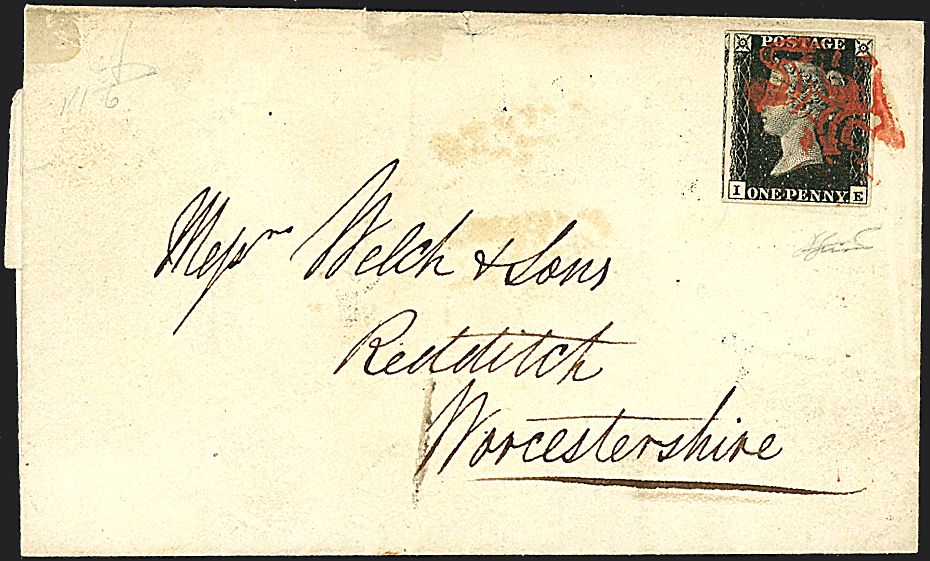 POSTAGE
I ONE PENNY. E
Messrs Welch & Sons
Redditch
Worcestershire